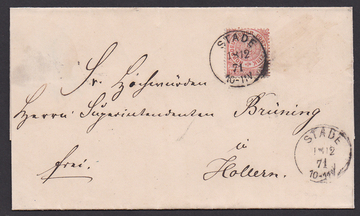 STADE
18 12
71
10-11V
Sr. Hochwürden
Herrn Superintendenten Brüning
frei.
Hollern.
STADE
18 12
71
10-11V